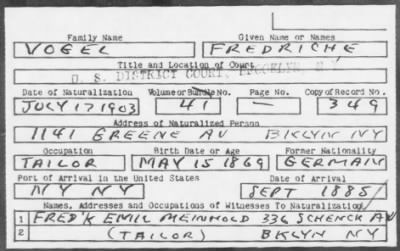 Family Name Given Name or Names
VOGEL FREDRICHE
Title and Location of Court
U. S. DISTRICT COURT, BROOKLYN, N.Y.
Date of Naturalization Volume or Bundle No. Page No. Copy of Record No.
JULY 17 1903 41 — 349
Address of Naturalized Person
1141 GREENE AV BKLYN NY
Occupation Birth Date or Age Former Nationality
TAILOR MAY 15 1869 GERMAN
Port of Arrival in the United States Date of Arrival
NY NY SEPT 1885
Names, Addresses and Occupations of Witnesses To Naturalization
1 FRED'K EMIL MEINHOLD 336 SCHENCK AV
2 (TAILOR) BKLYN NY